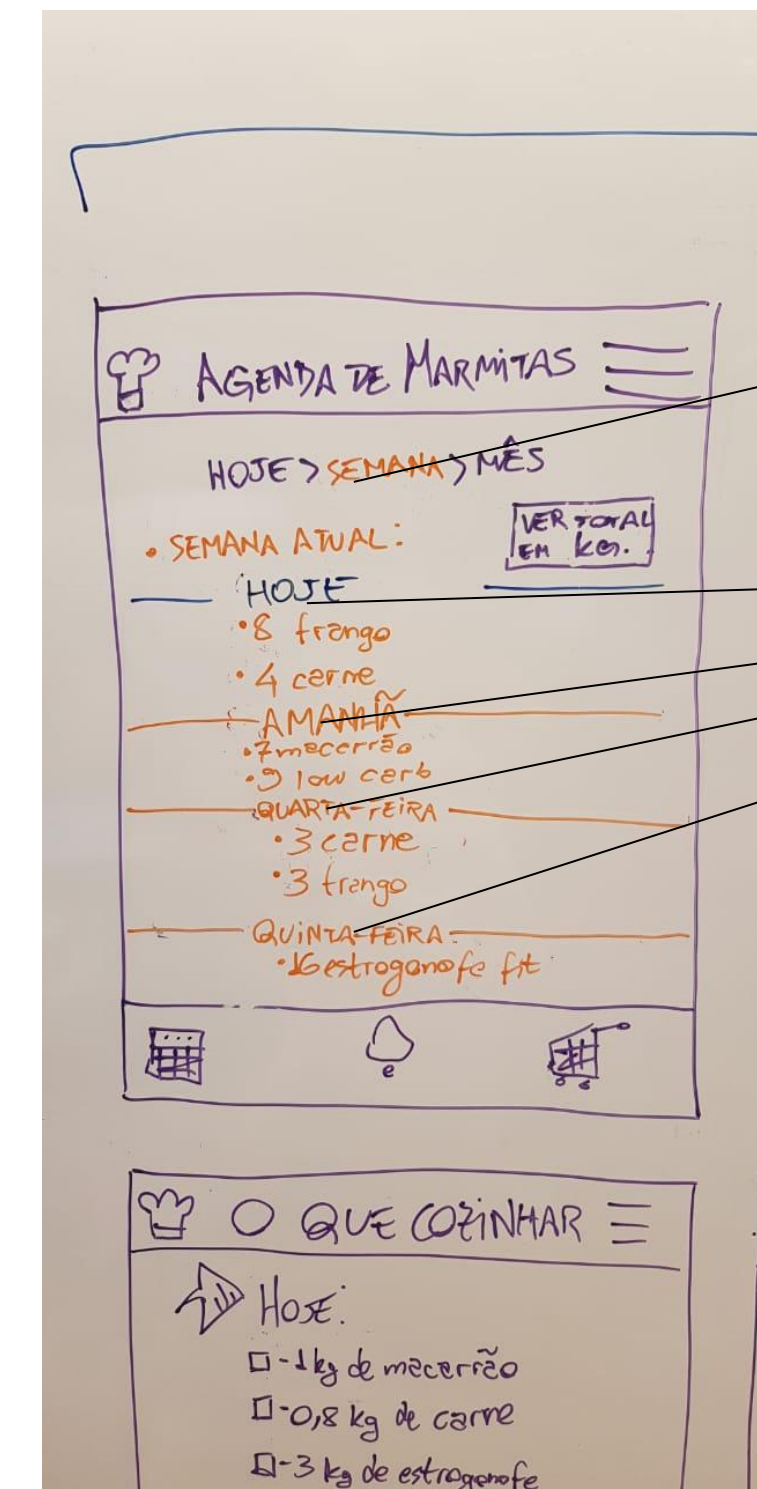 AGENDA DE MARMITAS
HOJE > SEMANA > MÊS
VER TOTAL
EM KG.
• SEMANA ATUAL:
HOJE
• 8 frango
• 4 carne
AMANHÃ
• 7 macarrão
• 9 low carb
QUARTA-FEIRA
• 3 carne
• 3 frango
QUINTA-FEIRA
• 16 estrogonofe fit
O QUE COZINHAR
HOJE:
- 1kg de macarrão
- 0,8 kg de carne
- 3 kg de estrogonofe